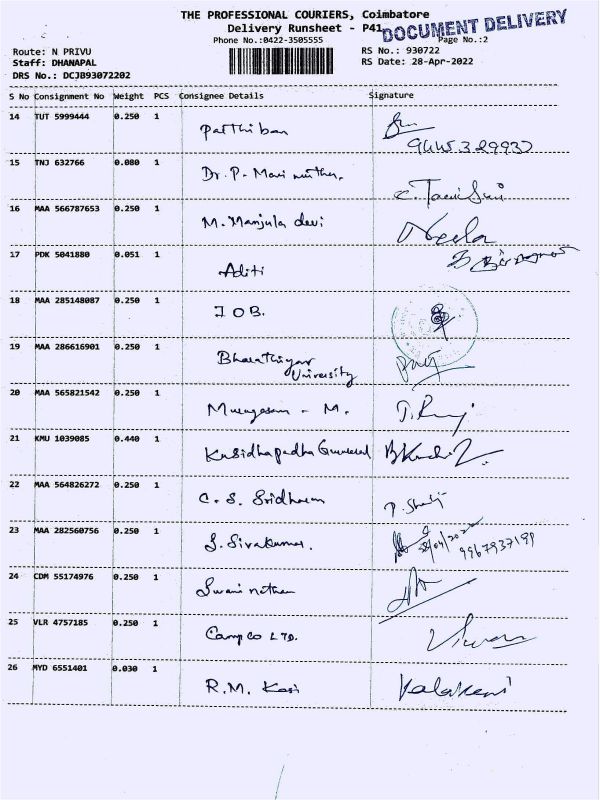 THE PROFESSIONAL COURIERS, Coimbatore
DOCUMENT DELIVERY
Delivery Runsheet - P41
Phone No.:0422-3505555 Page No.:2
Route: N PRIVU RS No.: 930722
Staff: DHANAPAL RS Date: 28-Apr-2022
DRS No.: DCJB93072202
S No Consignment No Weight PCS Consignee Details Signature
14 TUT 5999444 0.250 1
Parthiban
15 TNJ 632766 0.080 1
Dr. P.
16 MAA 566787653 0.250 1
M. Manjula devi
17 PDK 5041880 0.051 1
Aditi
18 MAA 285148087 0.250 1
IOB.
19 MAA 286616901 0.250 1
Bharathiyar
University
20 MAA 565821542 0.250 1
Murugesan - M.
21 KMU 1039085 0.440 1
22 MAA 564826272 0.250 1
C. S. Sridharan
23 MAA 282560756 0.250 1
S. Sivakumar. 9967937199
24 CDM 55174976 0.250 1
Swaminathan
25 VLR 4757185 0.250 1
Campco LTD.
26 MYD 6551401 0.030 1
R.M. Kasi